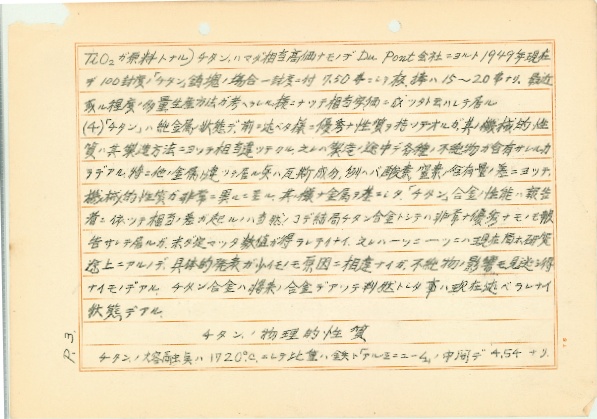 TiO₂ ガ原料トナル) チタン、ハマダ相当高価ナモノデ Du Pont会社ニヨルト1949年現在
デ 100封度ノ「チタン」鋳塊ノ場合一封度ニ付 7.50弗ニシテ板棒ハ15〜20弗ナリ、最近
或ル程度ノ多量生産方法ガ考ヘラレル様ニナツテ相当安価ニ
(4)「チタン」ハ純金属ノ状態デ前ニ述ベタ様ニ優秀ナ性質ヲ持ツテオルガ、其ノ機械的性
質ハ其製造方法ニヨツテ相当違ツテクル、又レハ製造ノ途中デ各種ノ不純物ガ含有サレルカ
ラデアル、特ニ他ノ金属ト違ツテ居ル矣ハ瓦斯成分、例ヘバ酸素、窒素ノ含有量ノ差ニヨツテ
機械的性質ガ非常ニ異ルニ至ル、其ノ様ナ金属ヲ基ニシタ「チタン」合金ノ性能ハ報告
者ニ依ツテ相当ノ差ガ起ルノハ当然ノコデ結局チタン合金トシテハ非常ナ優秀ナモノモ報
告サレテ居ルガ、未ダ定マツタ数値ガ得ラレテイナイ、又レハ一ツニ一ツニハ現在尚ホ研究
途上ニアルノデ、具体的発表ガ少イノモ原因ニ相違ナイガ、不純物ノ影響モ見逃シ得
ナイモノデアル、チタン合金ハ将来ノ合金デアツテ判然トシタ事ハ現在述ベラレナイ
状態デアル、
チタン、ノ物理的性質
チタン、ノ熔高生矣ハ 1720°C、ニシテ比重ハ鉄ト「アルミニューム」ノ中間デ 4.54 ナリ、
P.3.